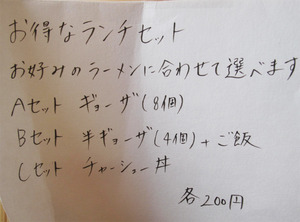 お得なランチセット
お好みのラーメンに合わせて選べます
Aセット ギョーザ(8個)
Bセット 半ギョーザ(4個)+ご飯
Cセット チャーシュー丼
各200円